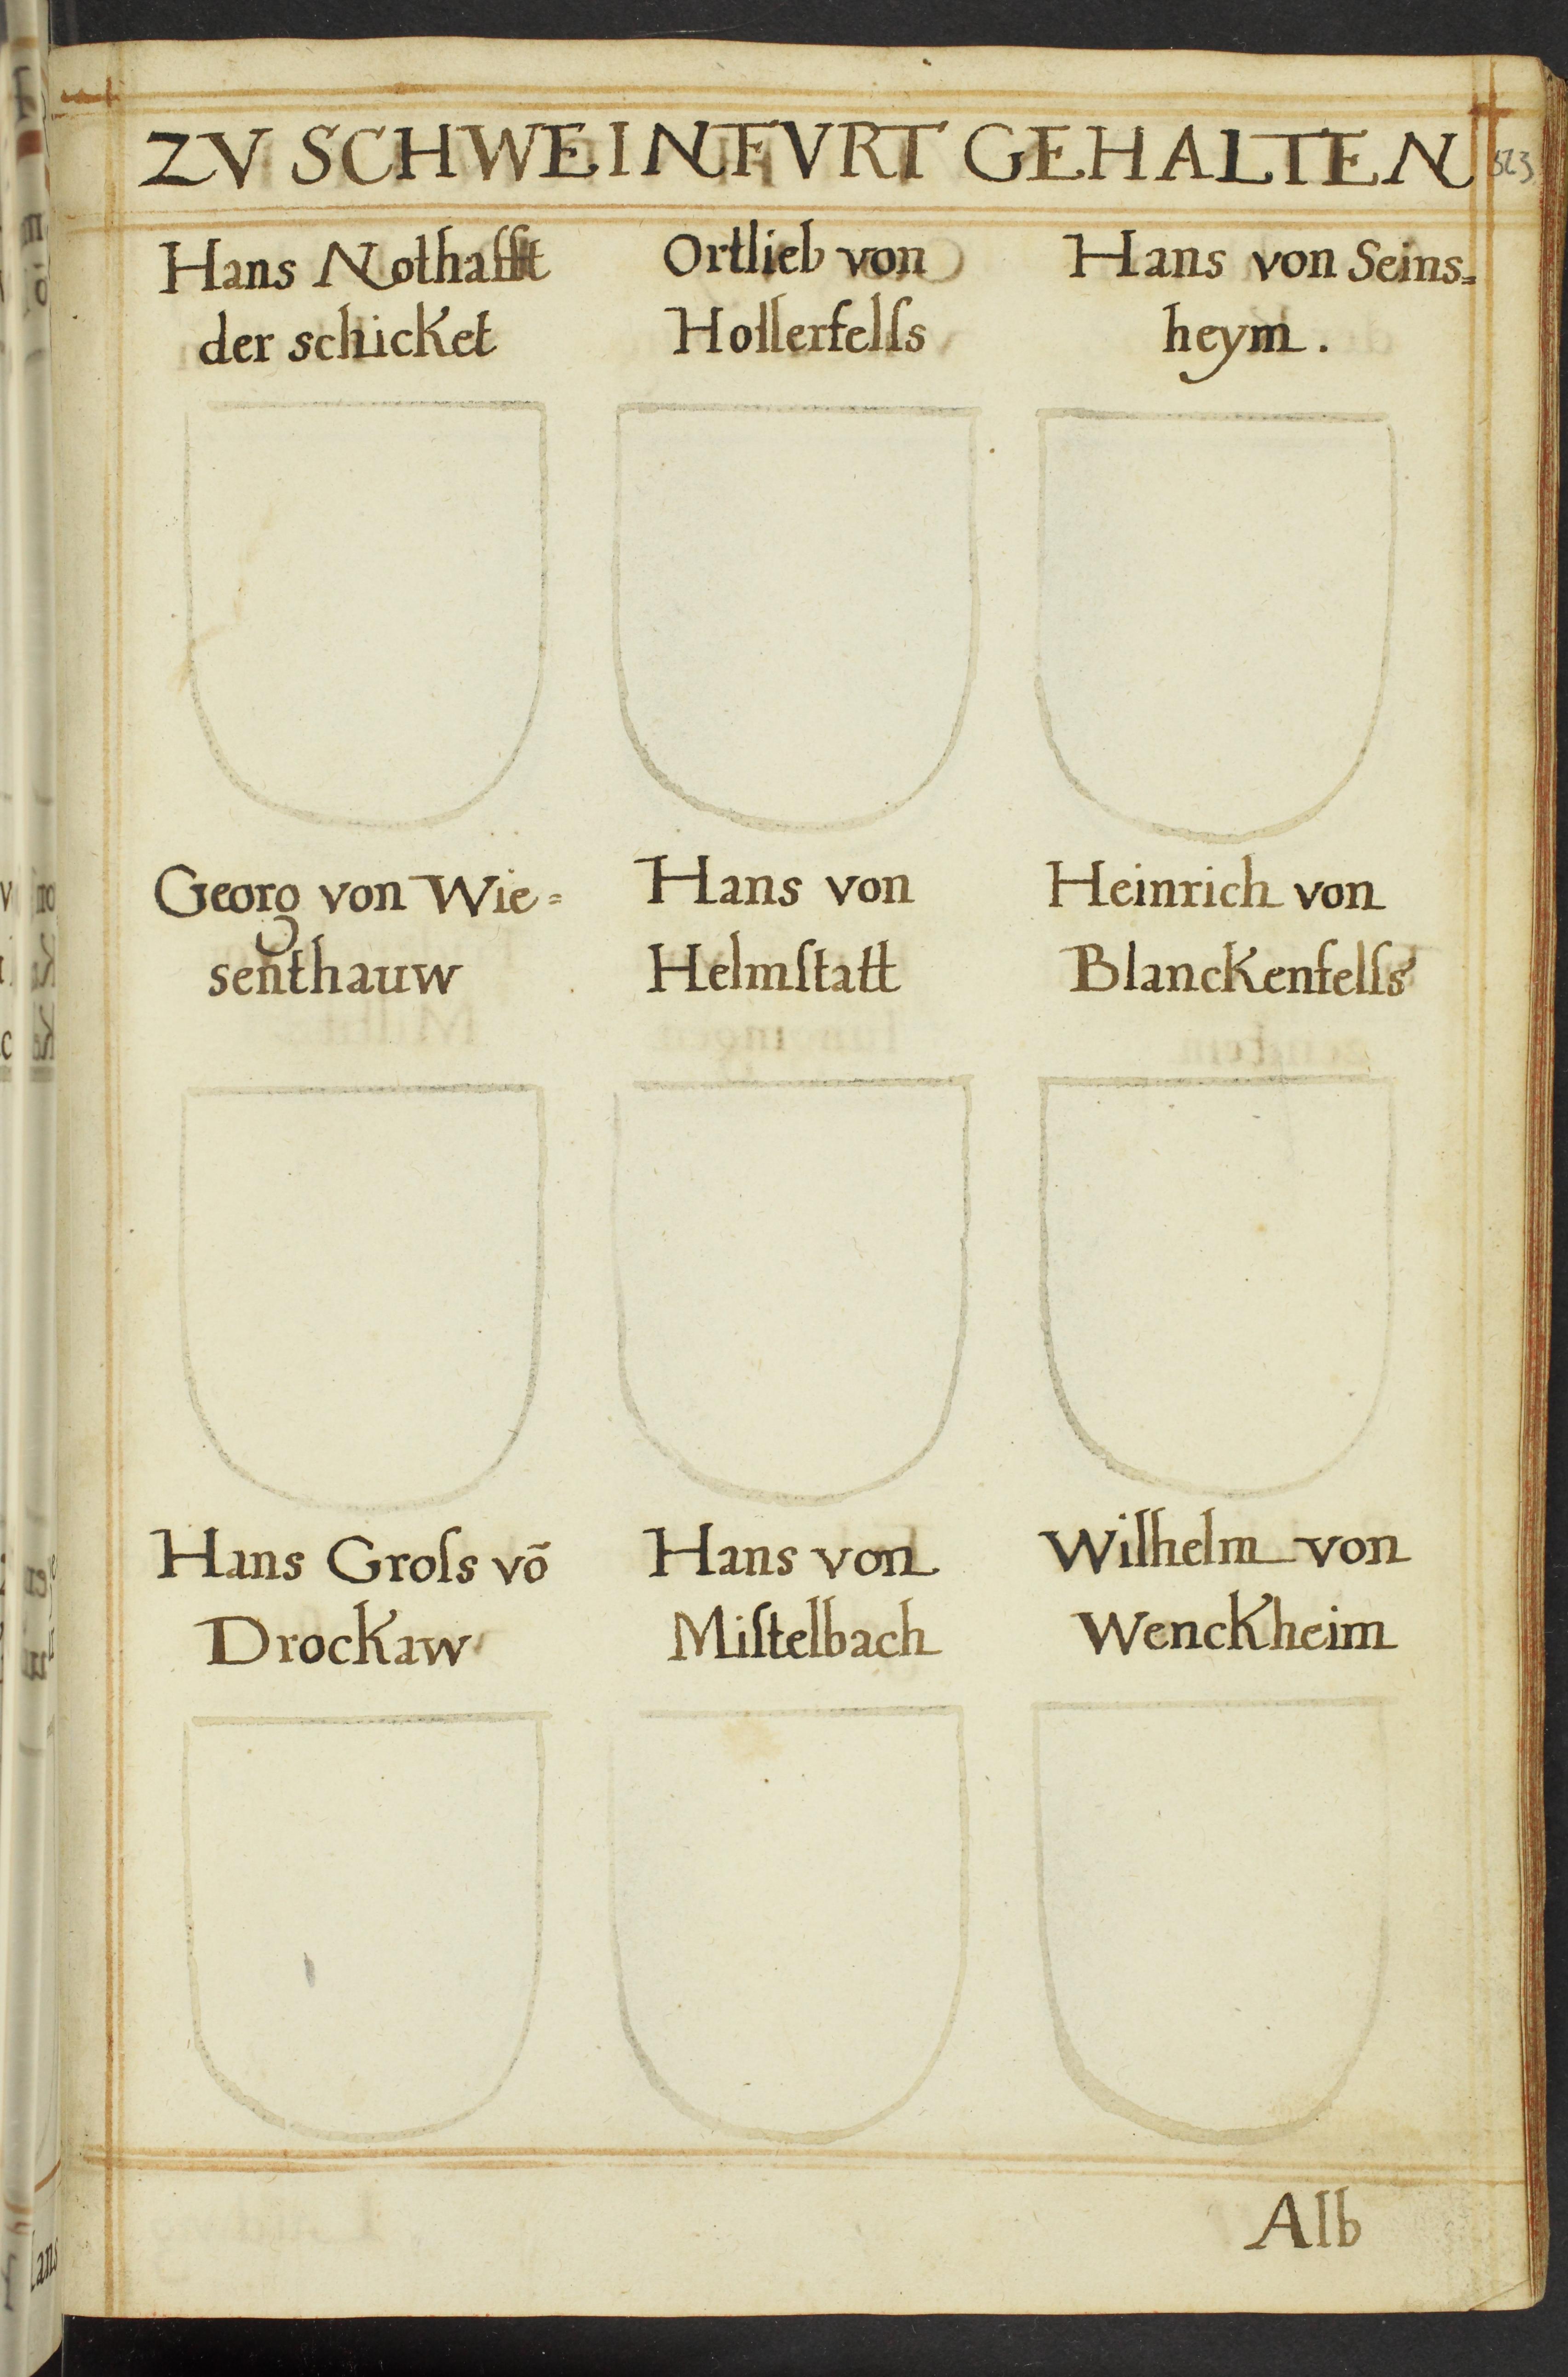 ZV SCHWEINFVRT GEHALTEN
Hans Nothafft
der schicket
Ortlieb von
Hollerfelſs
Hans von Seins=
heym.
Georg von Wie=
senthauw
Hans von
Helmſtatt
Heinrich von
Blanckenfelſs
Hans Groſs võ
Drockaw
Hans von
Miſtelbach
Wilhelm von
Wenckheim
Alb